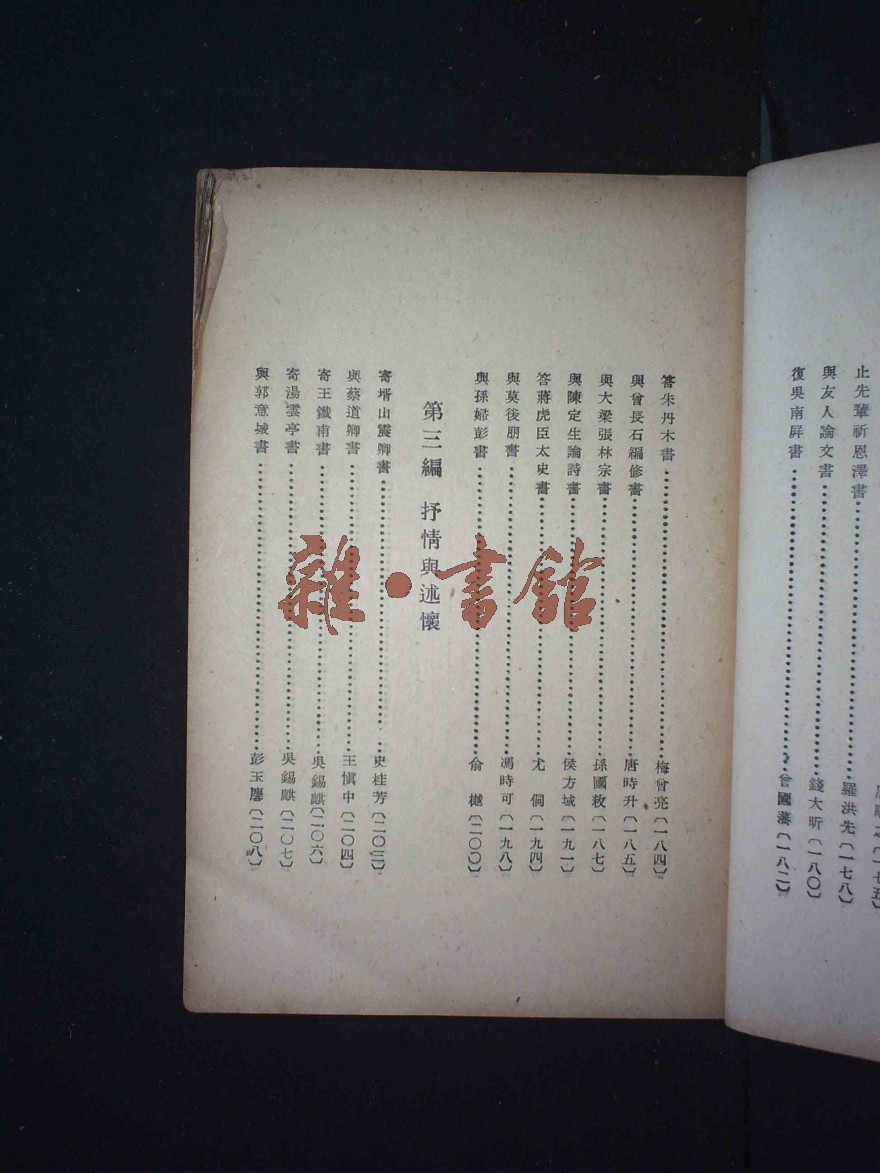 止先輩祈恩澤書……羅洪先〔一七八〕
與友人論文書……錢大昕〔一八〇〕
復吳南屏書……曾國藩〔一八二〕
答朱丹木書……梅曾亮〔一八四〕
與曾長石編修書……唐時升〔一八五〕
與大梁張林宗書……孫國敉〔一八七〕
與陳定生論詩書……侯方域〔一九一〕
答蔣虎臣太史書……尤侗〔一九四〕
與莫後朋書……馮時可〔一九八〕
與孫婿彭書……俞樾〔二〇〇〕
第三編 抒情與述懷
寄壻山震卿書……史桂芳〔二〇三〕
與蔡道卿書……王愼中〔二〇四〕
寄王鐵甫書……吳錫麒〔二〇六〕
寄湯雲亭書……吳錫麒〔二〇七〕
與郭意城書……彭玉麐〔二〇八〕
雜·書館